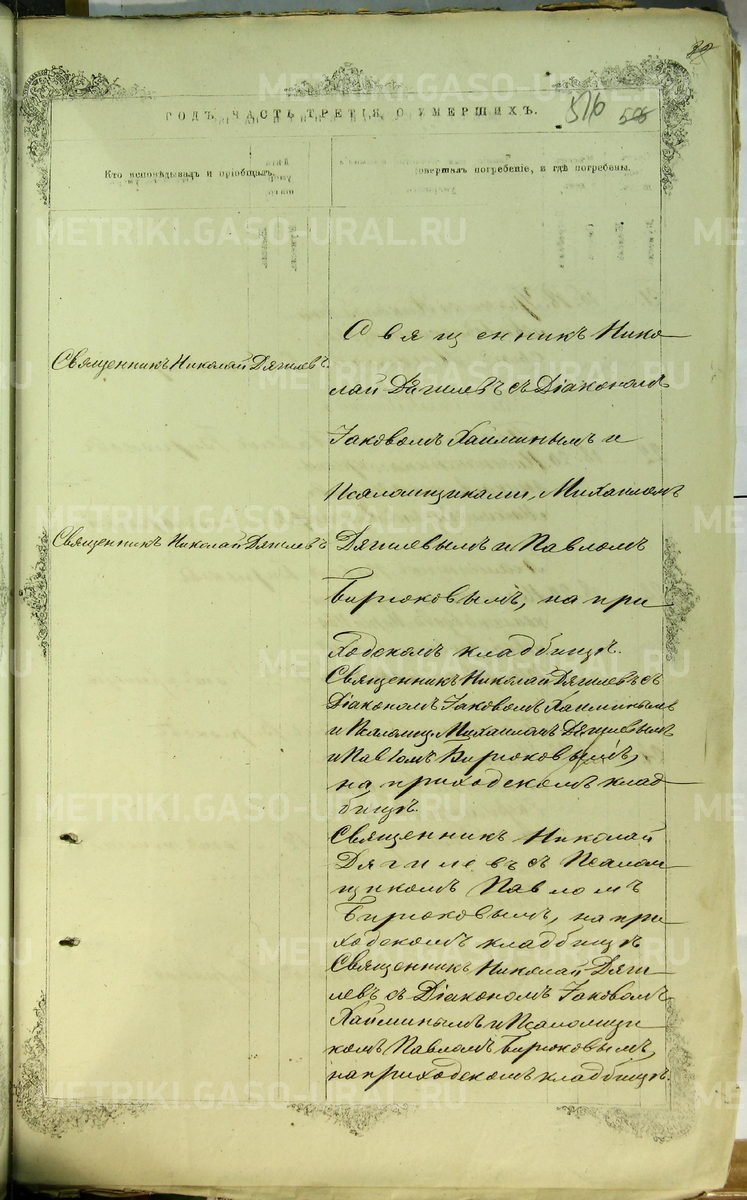 METRIKI.GASO-URAL.RU
ГОДЪ, ЧАСТЬ ТРЕТІЯ, О УМЕРШИХЪ.
516
Кто исповѣдывалъ и пріобщалъ.
совершалъ погребеніе, и гдѣ погребены.
Священникъ Николай Дягилевъ.
Священникъ Николай Дягилевъ
Священникъ Нико
лай Дягилевъ съ Діакономъ
Іаковомъ Хайминымъ и
Псаломщиками, Михаиломъ
Дягилевымъ и Павломъ
Бирюковымъ, на при
ходскомъ кладбищѣ.
Священникъ Николай Дягилевъ съ
Діакономъ Іаковомъ Хайминымъ
и Псаломщ. Михаиломъ Дягилевымъ
и Павломъ Бирюковымъ,
на приходскомъ клад
бищѣ.
Священникъ Николай
Дягилевъ съ Псалом
щикомъ Павломъ
Бирюковымъ, на при
ходскомъ кладбищѣ
Священникъ Николай Дяги
левъ съ Діакономъ Іаковомъ
Хайминымъ и Псаломщи
комъ Павломъ Бирюковымъ,
на приходскомъ кладбищѣ.